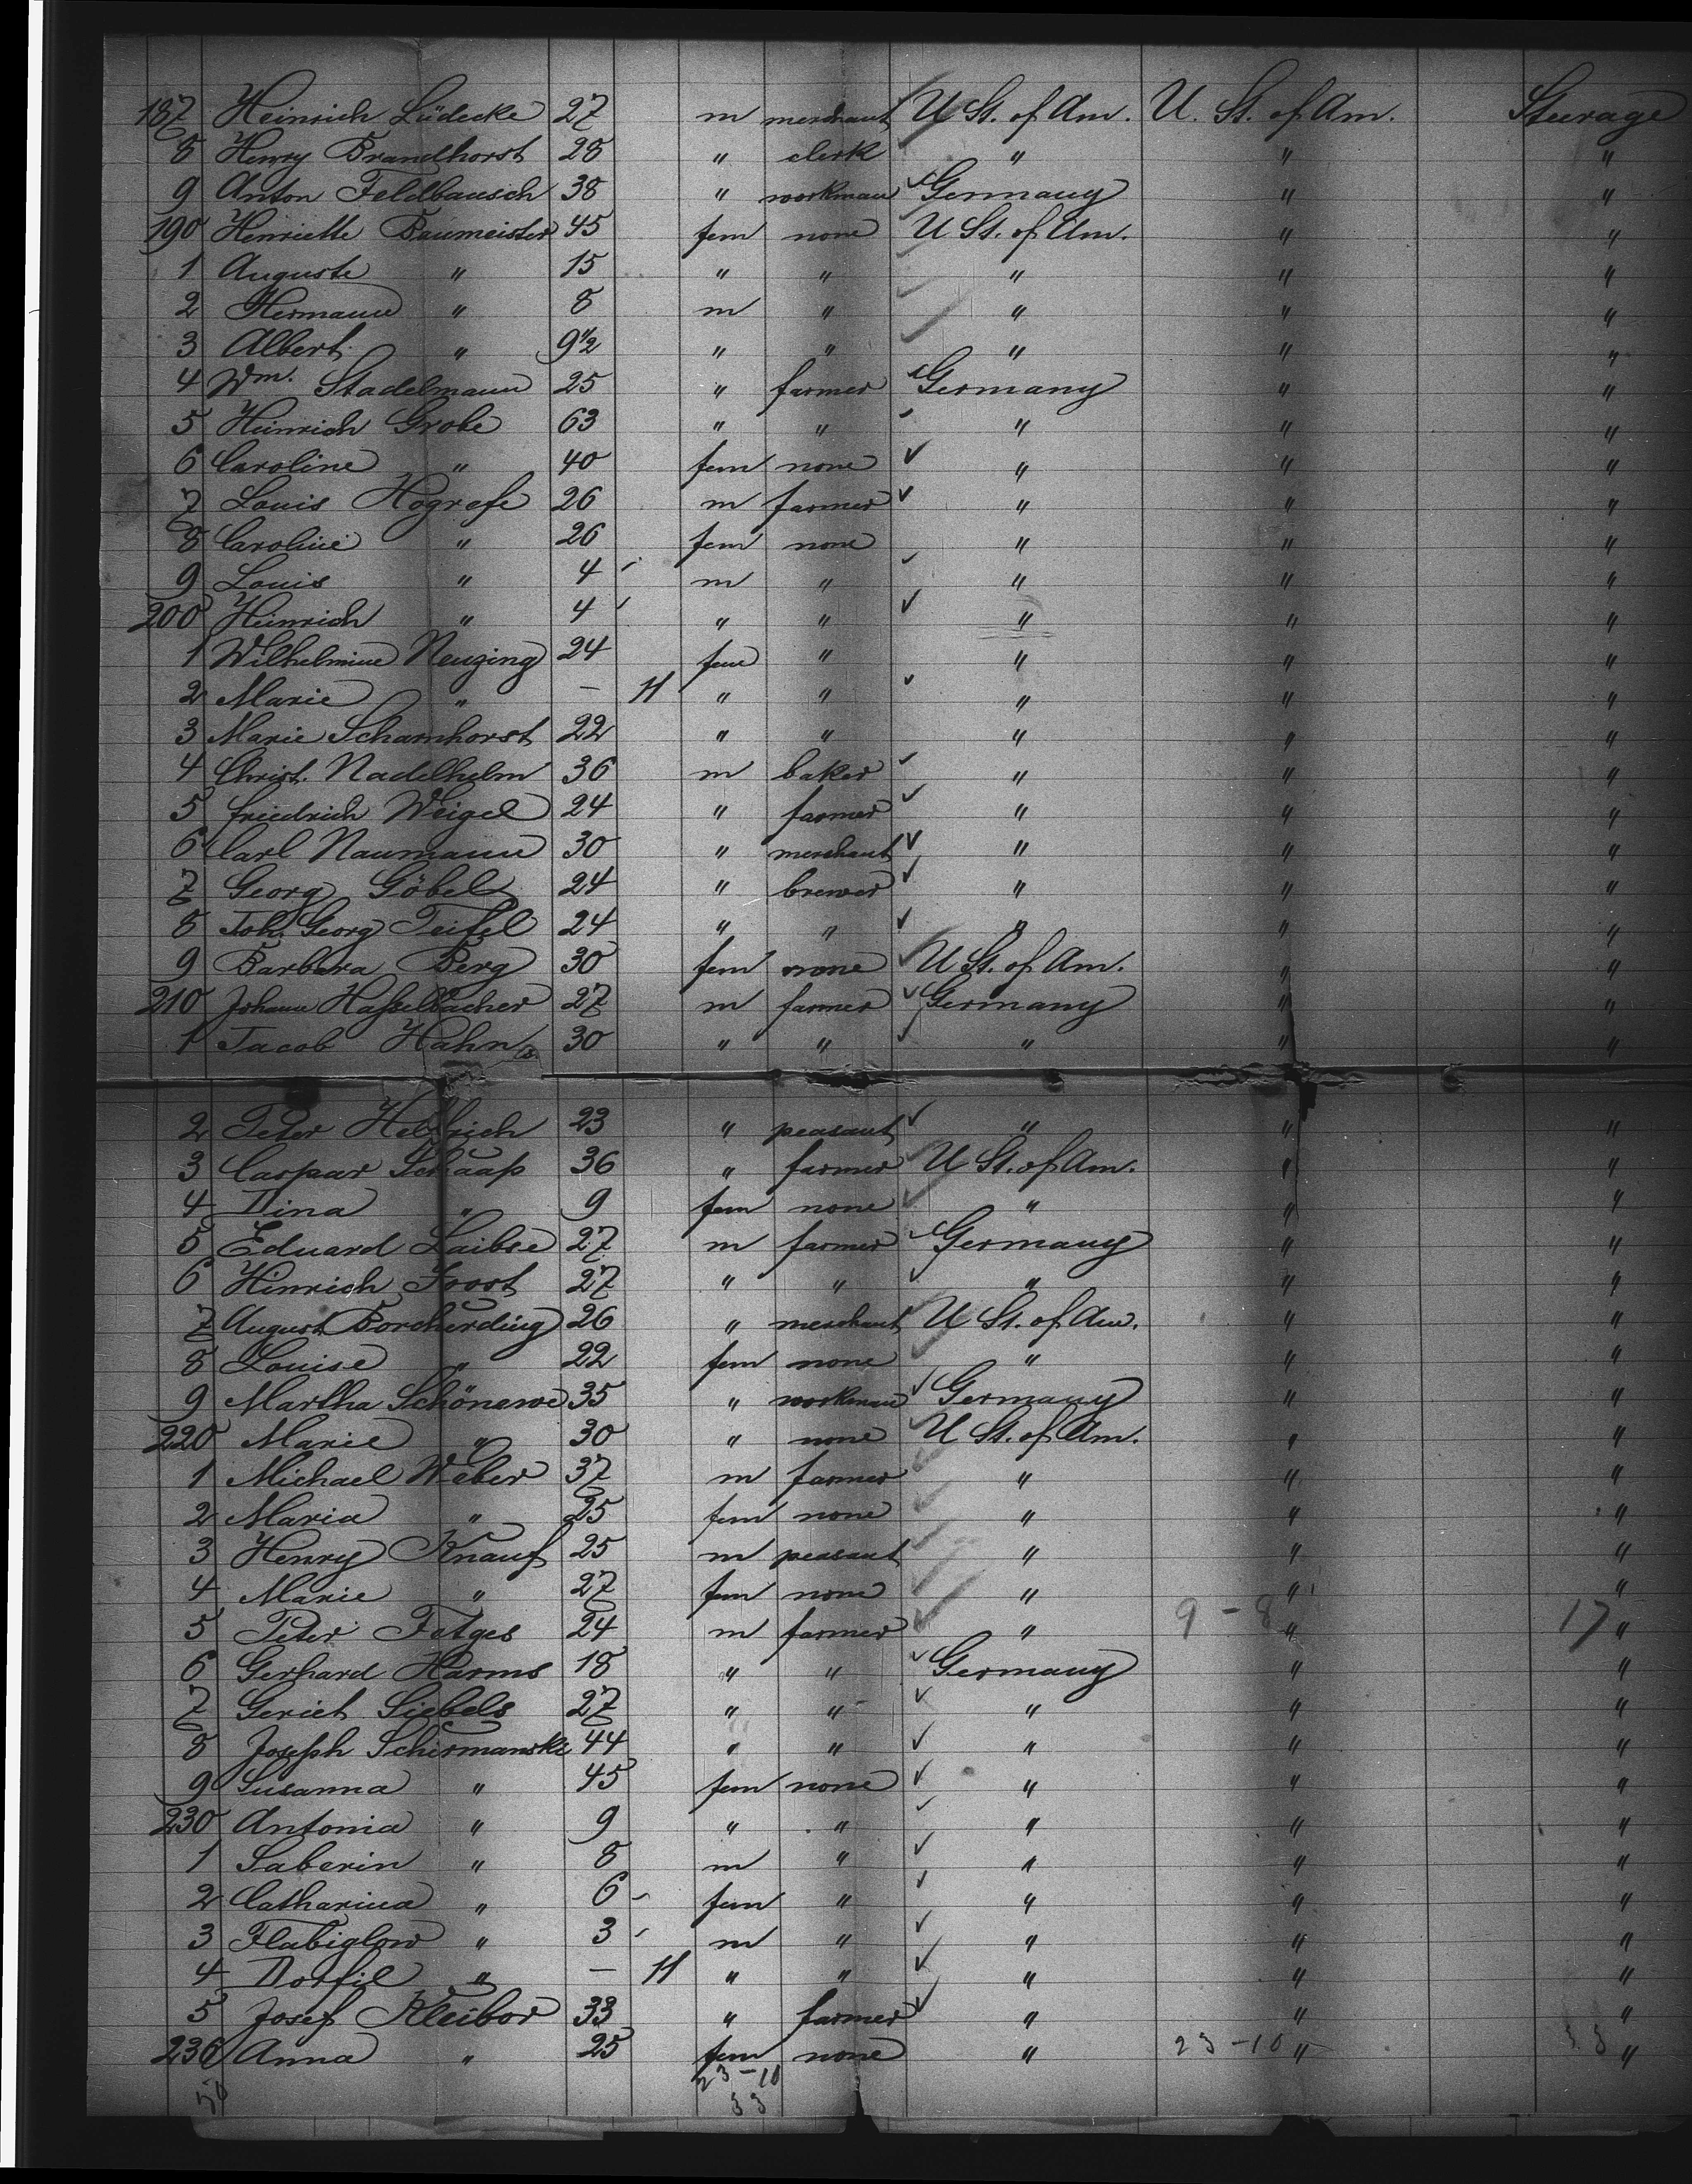 187 Heinrich Lüdecke 27 m merchant U St. of Am. U. St. of Am. Steerage
8 Henry Brandhorst 28 " clerk " " "
9 Anton Feldbausch 38 " workman Germany " "
190 Henriette Baumeister 45 fem none U St. of Am. " "
1 Auguste " 15 " " " " "
2 Hermann " 8 m " " " "
3 Albert " 9½ " " " " "
4 Wm. Stadelmann 25 " farmer Germany " "
5 Heinrich Grobe 63 " " " " "
6 Caroline " 40 fem none " " "
7 Louis Hogrefe 26 m farmer " " "
8 Caroline " 26 fem none " " "
9 Louis " 4 m " " " "
200 Heinrich " 4 " " " " "
1 Wilhelmine Neuzing 24 fem " " " "
2 Marie " — 11 " " " " "
3 Marie Scharnhorst 22 " " " " "
4 Christ. Nadelhelm 36 m baker " " "
5 Friedrich Weigel 24 " farmer " " "
6 Carl Naumann 30 " merchant " " "
7 Georg Göbel 24 " brewer " " "
8 Joh. Georg Teifel 24 " " " " "
9 Barbara Berg 30 fem none U St. of Am. " "
210 Johann Hasselbacher 27 m farmer Germany " "
1 Jacob Hahn 30 " " " " "
2 Peter 23 " peasant " " "
3 Caspar Schaap 36 " farmer U St. of Am. " "
4 Dina " 9 fem none " " "
5 Eduard Laibse 27 m farmer Germany " "
6 Hinrich Joost 27 " " " " "
7 August Borcherding 26 " merchant U St. of Am. " "
8 Louise " 22 fem none " " "
9 Martha Schönewe 35 " workman Germany " "
220 Marie " 30 " none U St. of Am. " "
1 Michael Weber 37 m farmer " " "
2 Maria " 25 fem none " " "
3 Henry Knauf 25 m peasant " " "
4 Marie " 27 fem none " " "
5 Peter Fetges 24 m farmer " 9 - 8 " 17 "
6 Gerhard Harms 18 " " Germany " "
7 Geriet Siebels 27 " " " " "
8 Joseph Schirmanski 44 " " " " "
9 Susanna " 45 fem none " " "
230 Antonia " 9 " " " " "
1 Saberin " 8 m " " " "
2 Catharina " 6 fem " " " "
3 Flabiglow " 3 m " " " "
4 Dorfil " — 11 " " " " "
5 Josef Kleibor 33 " farmer " " "
236 Anna " 25 fem none " 23 - 10 " 33 "
50 23 - 10
33